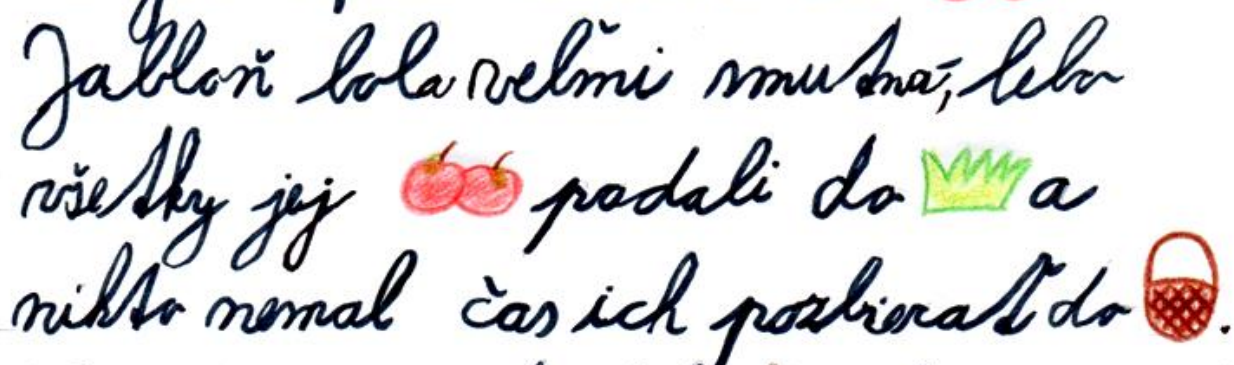 Jabloň bola veľmi smutná, lebo
všetky jej padali do a
nikto nemal čas ich pozbierať do .